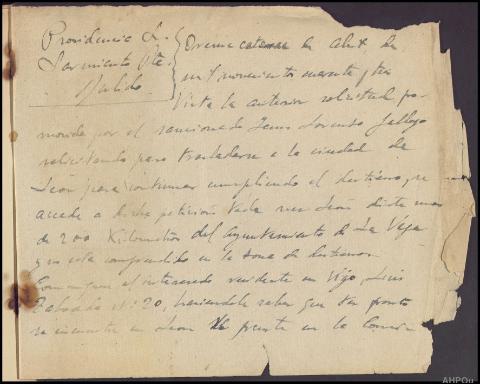 Providencia
Sarmiento Pte.
Pulido
Orense catorce de abril de
mil novecientos cuarenta y tres
Vista la anterior solicitud pro-
movida por el sancionado Lorenzo Gallego
solicitando para trasladarse a la ciudad de
León para continuar cumpliendo el destierro, se
accede a dicha petición toda vez León dista mas
de 200 Kilometros del Ayuntamiento de La Vega
y no esta comprendido en la zona de destierro.
Comuniquese al interesado residente en Vigo, Luis
Taboada nº 20, haciendole saber que tan pronto
se encuentre en Leon se presente en la Comisa
AHPOu